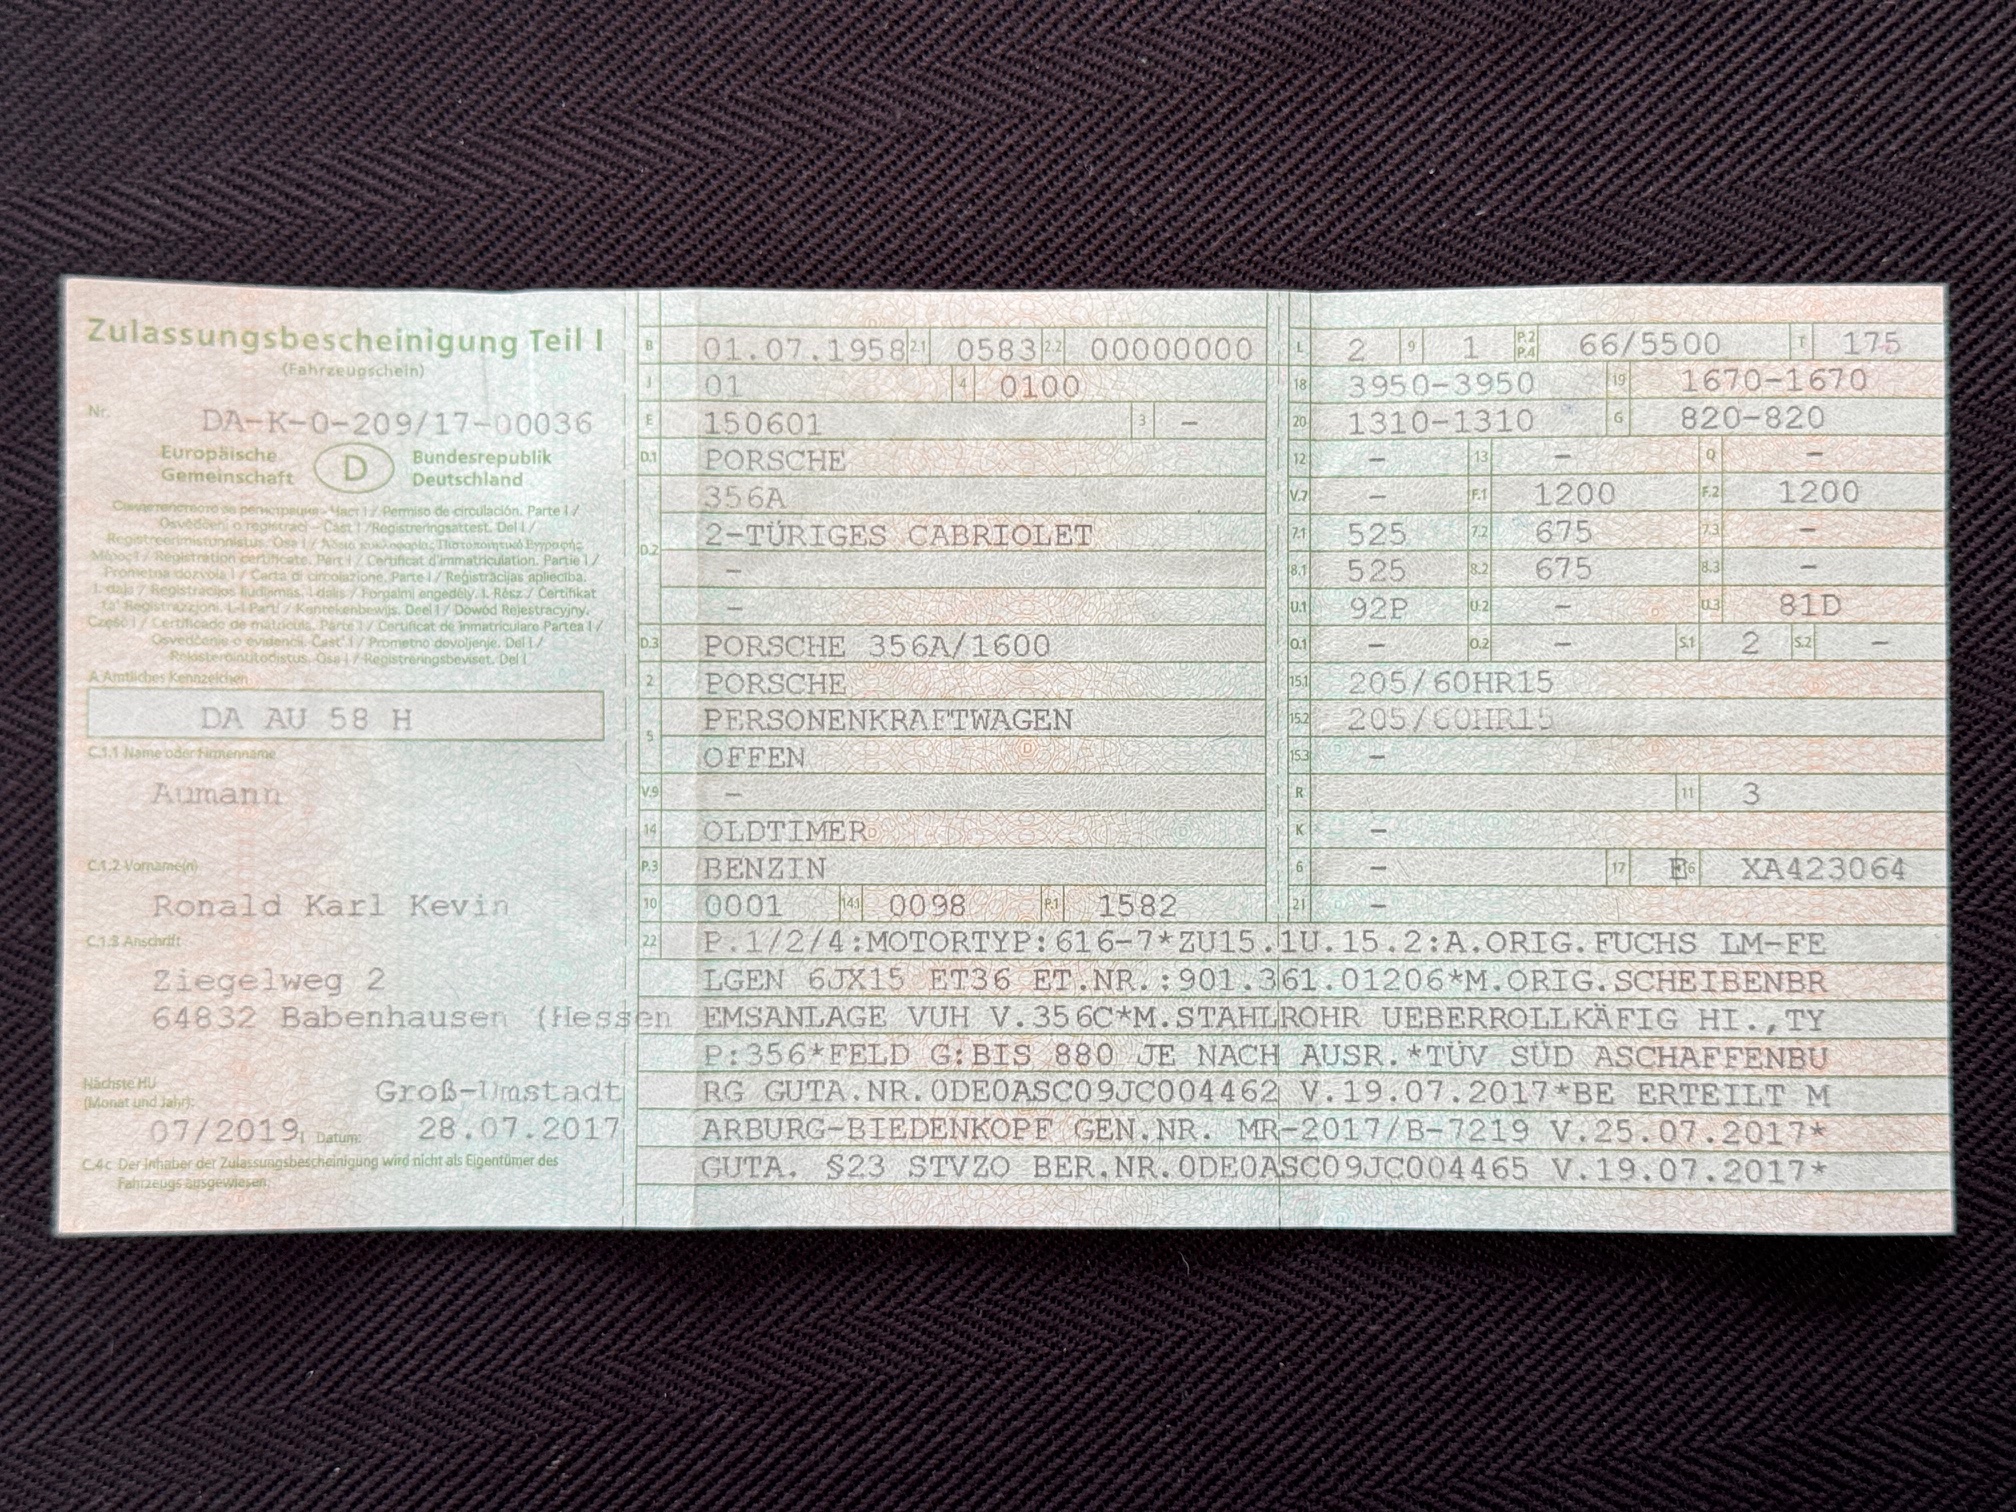 Zulassungsbescheinigung Teil I
(Fahrzeugschein)
Nr. DA-K-0-209/17-00036
Europäische Gemeinschaft D Bundesrepublik Deutschland
Част I / Permiso de circulación. Parte I /
Osvědčení o registraci – Část I / Registreringsattest. Del I /
Registreerimistunnistus. Osa I / Άδεια κυκλοφορίας
/ Registration certificate. Part I / Certificat d'immatriculation. Partie I /
Prometna dozvola I / Carta di circolazione. Parte I / Reģistrācijas apliecība.
I. daļa / Registracijos liudijimas. I dalis / Forgalmi engedély. I. Rész / Ċertifikat
ta' Reġistrazzjoni. L-I Parti / Kentekenbewijs. Deel I / Dowód Rejestracyjny.
Część I / Certificado de matrícula. Parte I / Certificat de înmatriculare Partea I /
Osvedčenie o evidencii. Časť I / Prometno dovoljenje. Del I /
Rekisteröintitodistus. Osa I / Registreringsbeviset. Del I
A Amtliches Kennzeichen
DA AU 58 H
C.1.1 Name oder Firmenname
Aumann
C.1.2 Vorname(n)
Ronald Karl Kevin
C.1.3 Anschrift
Ziegelweg 2
64832 Babenhausen (Hessen
Nächste HU
(Monat und Jahr):
Groß-Umstadt
07/2019 Datum: 28.07.2017
C.4c Der Inhaber der Zulassungsbescheinigung wird nicht als Eigentümer des
Fahrzeugs ausgewiesen.
B 01.07.1958 2.1 0583 2.2 00000000
J 01 4 0100
E 150601 3 –
D.1 PORSCHE
356A
D.2 2-TÜRIGES CABRIOLET
–
–
D.3 PORSCHE 356A/1600
2 PORSCHE
5 PERSONENKRAFTWAGEN
OFFEN
V.9 –
14 OLDTIMER
P.3 BENZIN
10 0001 14.1 0098 P.1 1582
L 2 9 1 P.2 P.4 66/5500 T 175
18 3950-3950 19 1670-1670
20 1310-1310 G 820-820
12 – 13 – Q –
V.7 – F.1 1200 F.2 1200
7.1 525 7.2 675 7.3 –
8.1 525 8.2 675 8.3 –
U.1 92P U.2 – U.3 81D
O.1 – O.2 – S.1 2 S.2 –
15.1 205/60HR15
15.2 205/60HR15
15.3 –
R 11 3
K –
6 – 17 E 16 XA423064
21 –
22 P.1/2/4:MOTORTYP:616-7*ZU15.1U.15.2:A.ORIG.FUCHS LM-FE
LGEN 6JX15 ET36 ET.NR.:901.361.01206*M.ORIG.SCHEIBENBR
EMSANLAGE VUH V.356C*M.STAHLROHR UEBERROLLKÄFIG HI.,TY
P:356*FELD G:BIS 880 JE NACH AUSR.*TÜV SÜD ASCHAFFENBU
RG GUTA.NR.0DE0ASC09JC004462 V.19.07.2017*BE ERTEILT M
ARBURG-BIEDENKOPF GEN.NR. MR-2017/B-7219 V.25.07.2017*
GUTA. §23 STVZO BER.NR.0DE0ASC09JC004465 V.19.07.2017*